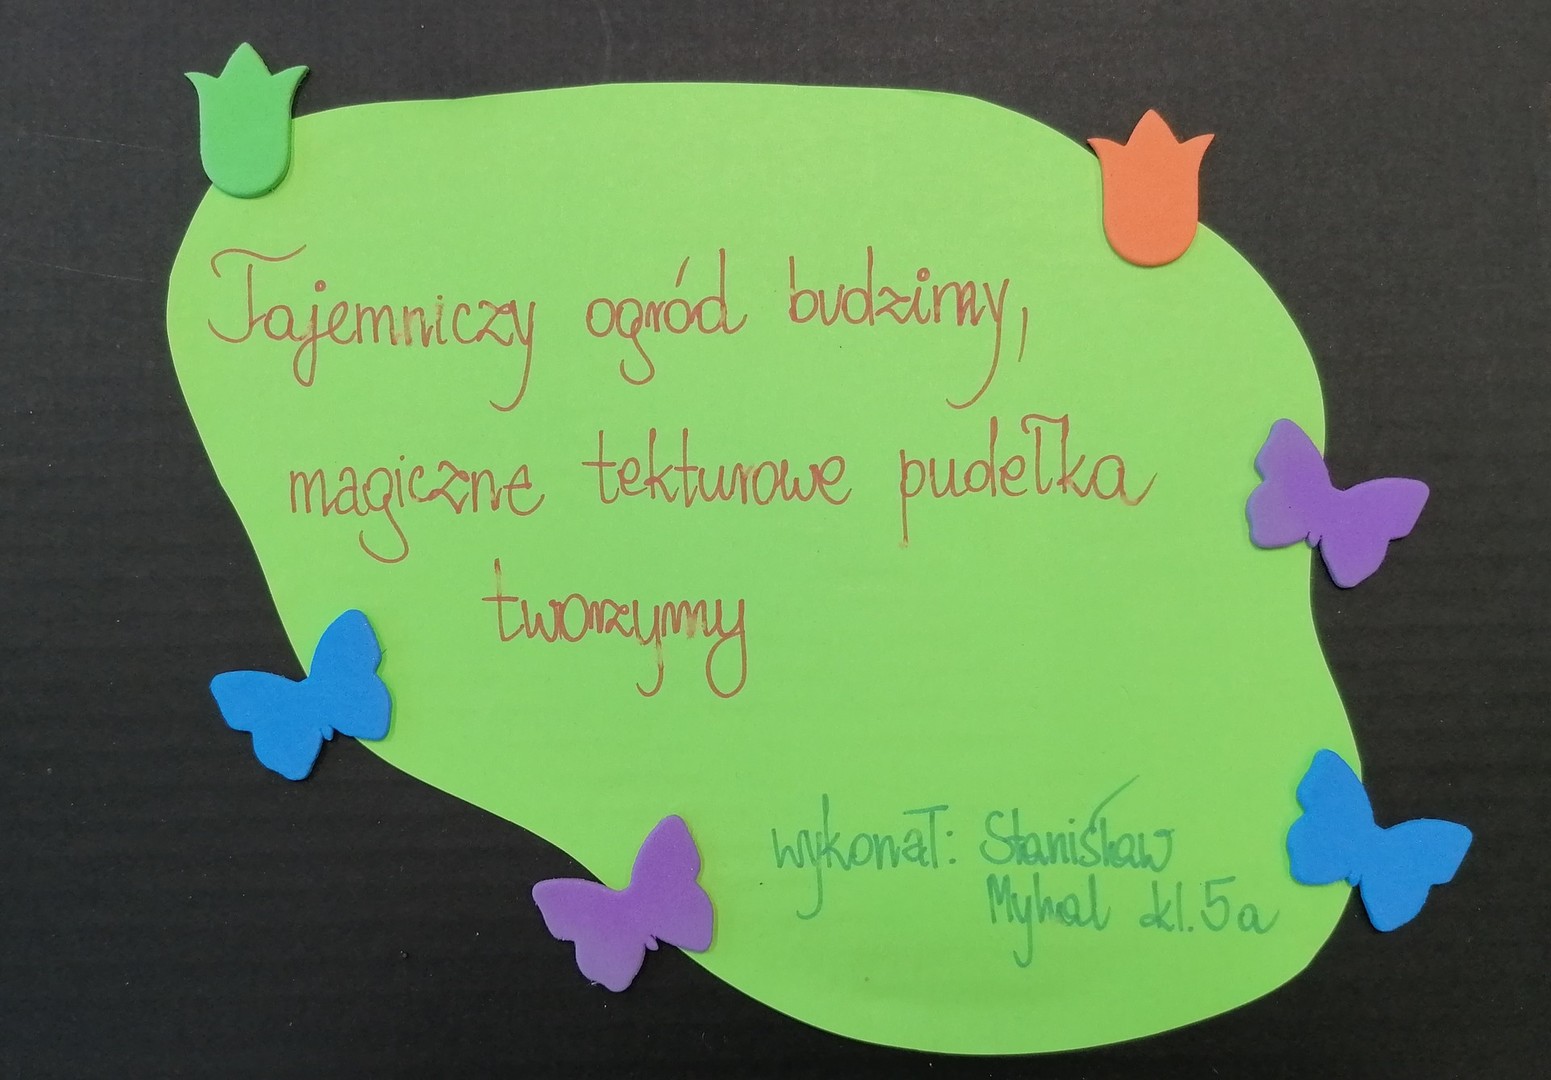 Tajemniczy ogród budzimy,
magiczne tekturowe pudełka
tworzymy
wykonał: Stanisław
kl. 5a